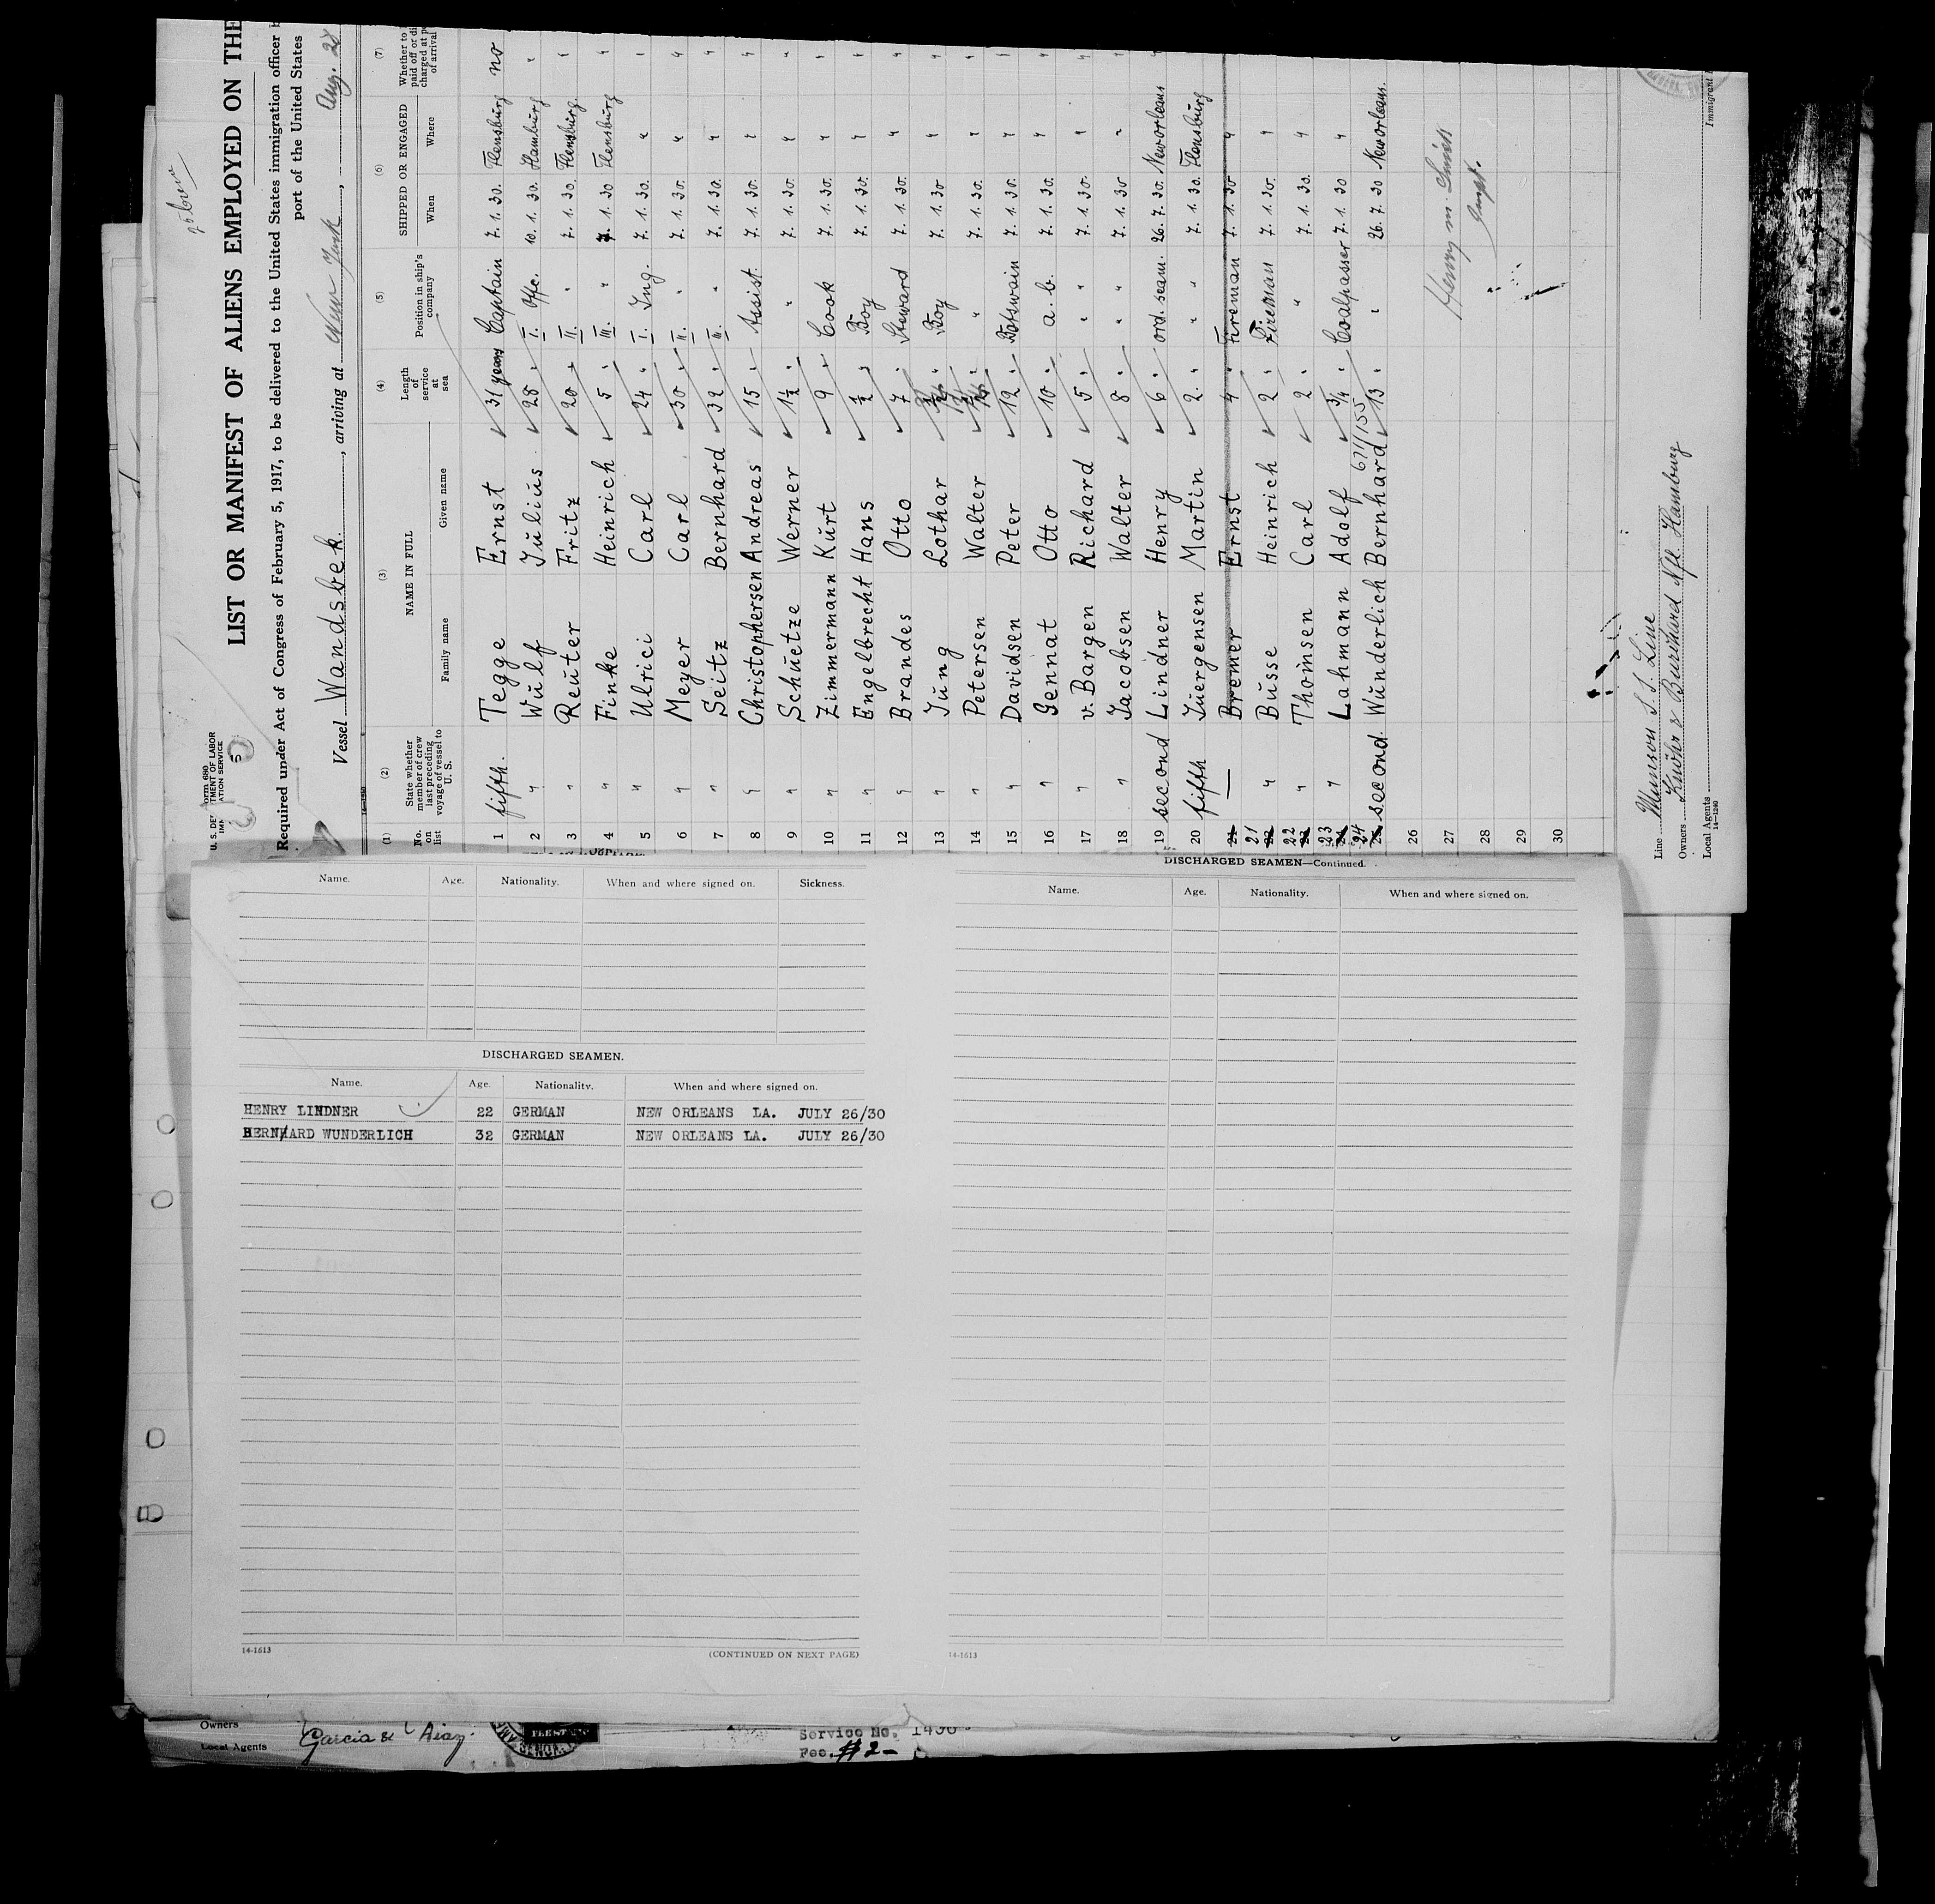 25 Crew
U. S. DEPARTMENT OF LABOR
LIST OR MANIFEST OF ALIENS EMPLOYED ON THE
Required under Act of Congress of February 5, 1917, to be delivered to the United States immigration officer
port of the United States
Vessel Wandsbek., arriving at New York, Aug. 28
(1) (2) (3) (4) (5) (6) (7)
No. on list State whether member of crew last preceding voyage of vessel to U. S. NAME IN FULL Length of service at sea Position in ship's company SHIPPED OR ENGAGED Whether to paid off or di charged at p of arrival
Family name Given name When Where
1 fifth. Tegge Ernst 31 years Captain 7. 1. 30. Flensburg no
2 " Wulf Julius 28 " I. Offc. 10. 1. 30. Hamburg "
3 " Reuter Fritz 20 " II. " 7. 1. 30. Flensburg. "
4 " Finke Heinrich 5 " III. " 7. 1. 30 Flensburg "
5 " Ulrici Carl 24 " I. Ing. 7. 1. 30. " "
6 " Meyer Carl 30 " II. " 7. 1. 30. " "
7 " Seitz Bernhard 32 " III. " 7. 1. 30. " "
8 " Christophersen Andreas 15 " Assist. 7. 1. 30. " "
9 " Schuetze Werner 1½ " " 7. 1. 30. " "
10 " Zimmermann Kurt 9 " Cook 7. 1. 30. " "
11 " Engelbrecht Hans ½ " Boy 7. 1. 30. " "
12 " Brandes Otto 7 " Steward 7. 1. 30. " "
13 " Jung Lothar " Boy 7. 1. 30 " "
14 " Petersen Walter " " 7. 1. 30. " "
15 " Davidsen Peter 12 " Botswain 7. 1. 30. " "
16 " Gennat Otto 10 " a. b. 7. 1. 30. " "
17 " v. Bargen Richard 5 " " 7. 1. 30. " "
18 " Jacobsen Walter 8 " " 7. 1. 30 " "
19 second Lindner Henry 6 " ord. seam. 26. 7. 30. New orleans "
20 fifth Juergensen Martin 2 " " 7. 1. 30. Flensburg
21 — Bremer Ernst 4 " Fireman 7. 1. 30 "
21 22 " Busse Heinrich 2 " Fireman 7. 1. 30. "
22 23 " Thomsen Carl 2 " " 7. 1. 30. "
23 24 " Lahmann Adolf ¾ " Coalpasser 7. 1. 30 "
671/155
24 25 second. Wunderlich Bernhard 13 " " 26. 7. 30 New orleans.
26
27
28
29
30
Henry M. Smith
Inspt.
Line Munson S. S. Line
Owners Knöhr & Burchard Nfl. Hamburg
Local Agents
14—1240
Immigrant
Name. Age. Nationality. When and where signed on. Sickness.
DISCHARGED SEAMEN.
Name. Age. Nationality. When and where signed on.
HENRY LINDNER 22 GERMAN NEW ORLEANS LA. JULY 26/30
BERNHARD WUNDERLICH 32 GERMAN NEW ORLEANS LA. JULY 26/30
14-1613 (CONTINUED ON NEXT PAGE)
DISCHARGED SEAMEN—Continued.
Name. Age. Nationality. When and where signed on.
14-1613
Owners
Local Agents Garcia & Diaz.
Service No. 1436
Fee. $2-